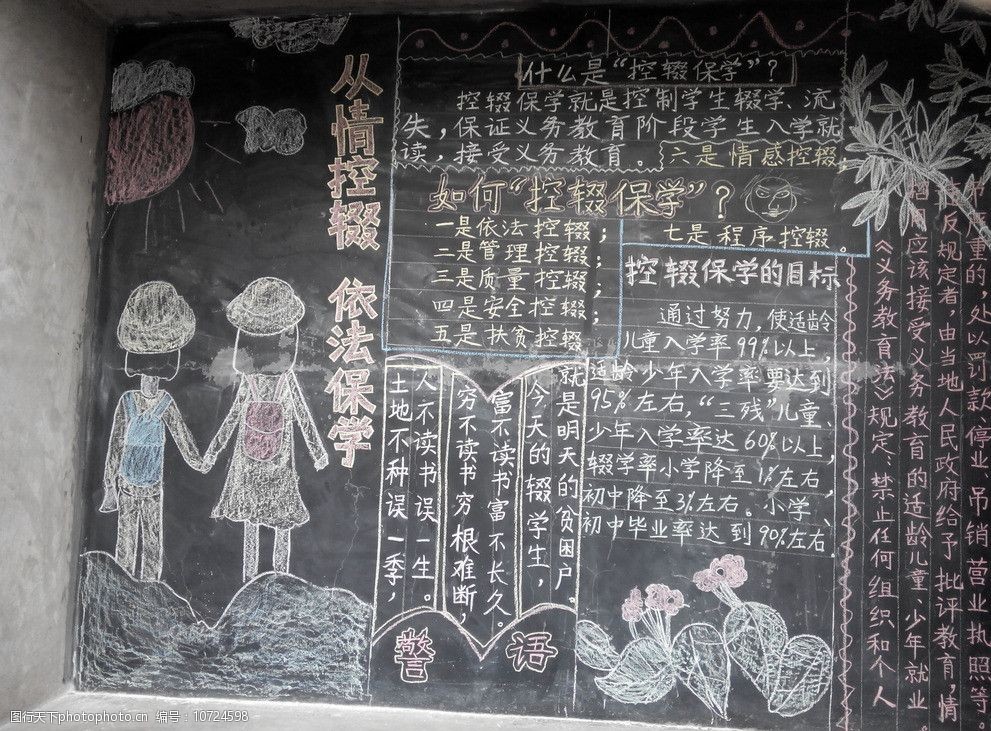 从情控辍 依法保学
什么是“控辍保学”？
控辍保学就是控制学生辍学、流
失，保证义务教育阶段学生入学就
读，接受义务教育。
如何“控辍保学”？
一是依法控辍；
二是管理控辍；
三是质量控辍；
四是安全控辍；
五是扶贫控辍
六是情感控辍；
七是程序控辍。
控辍保学的目标
通过努力，使适龄
儿童入学率99%以上，
适龄少年入学率要达到
95%左右，“三残”儿童、
少年入学率达60%以上，
辍学率小学降至1%左右，
初中降至3%左右。小学、
初中毕业率达到90%左右.
警语
土地不种误一季，
人不读书误一生。
穷不读书穷根难断，
富不读书富不长久。
今天的辍学生，
就是明天的贫困户。
《义务教育法》规定：禁止任何组织和个人
招用应该接受义务教育的适龄儿童、少年就业
违反规定者，由当地人民政府给予批评教育，情
节严重的，处以罚款、停业、吊销营业执照等。
图行天下photophoto.cn 编号：10724598